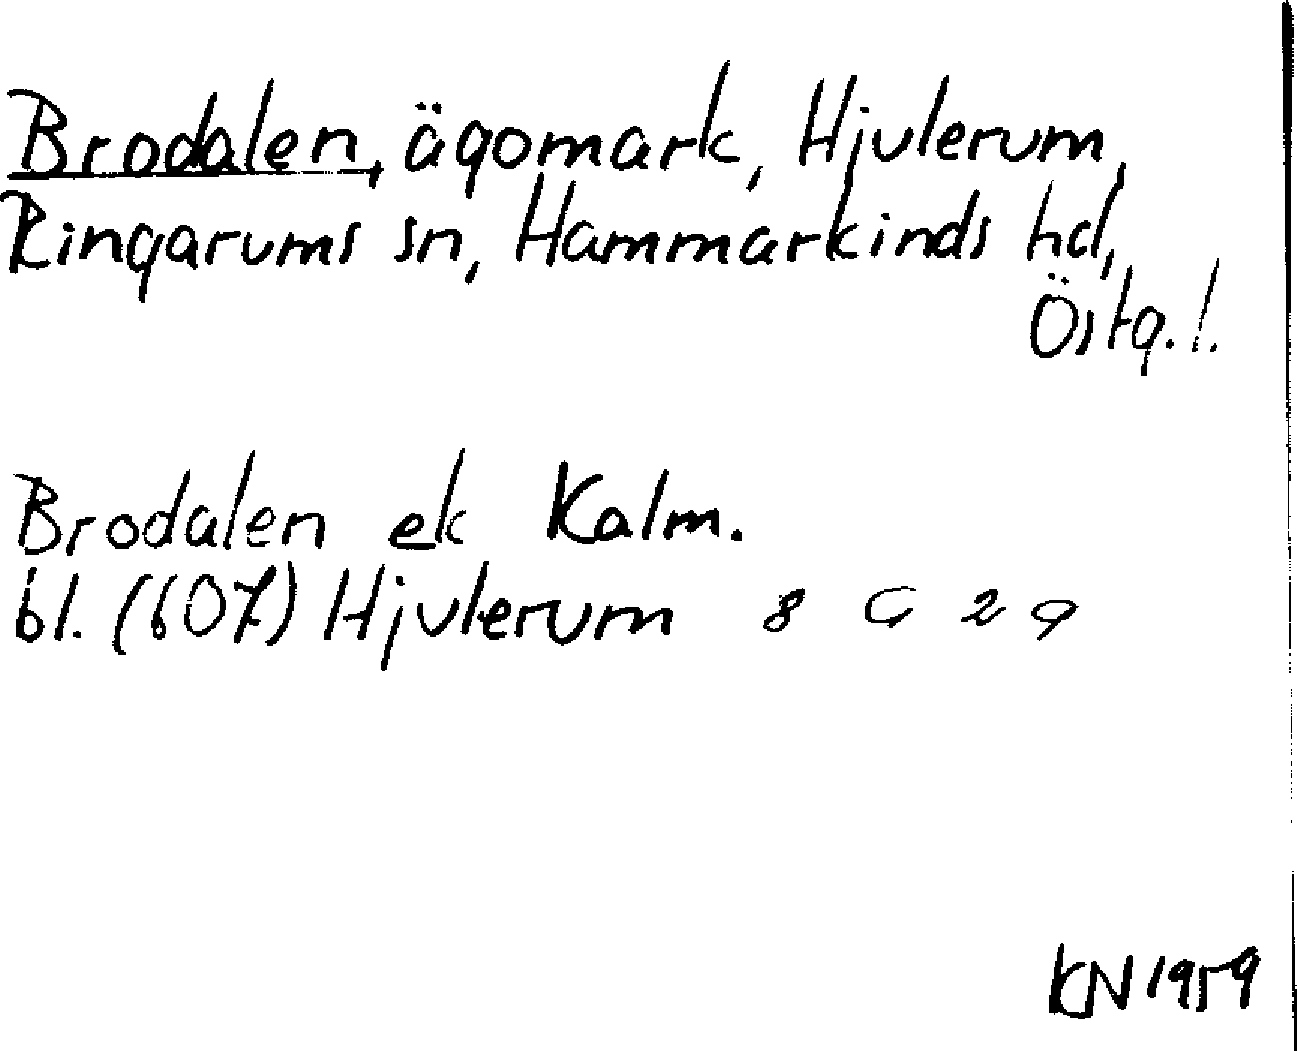 Brodalen, ägomark, Hjulerum,
Ringarums sn, Hammarkinds hd,
Östg.l.
Brodalen ek Kalm.
bl. (607) Hjulerum 8 G 2 a
KN 1959